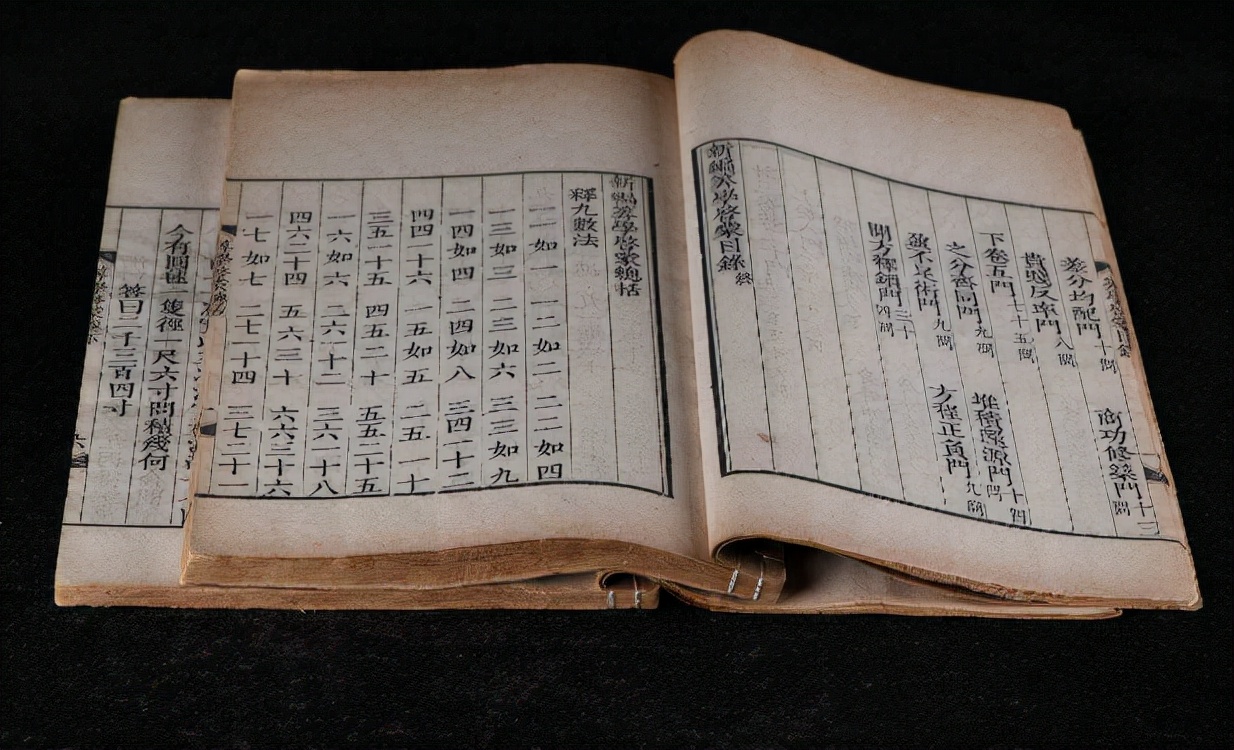 差分均配門十問 商功修築門十三問
貴賤反率門八問
下卷五門七十五問
之分齊同門九問 堆積還源門十四問
盈不足術門九問 方程正負門九問
開方釋鎖門三十四問
新編算學啓蒙目錄終
新編算學啓蒙總括
釋九數法
一一如一 一二如二 二二如四
一三如三 二三如六 三三如九
一四如四 二四如八 三四一十二
四四一十六 一五如五 二五一十
三五一十五 四五二十 五五二十五
一六如六 二六一十二 三六一十八
四六二十四 五六三十 六六三十六
一七如七 二七一十四 三七二十一
今有圓毬一隻徑一尺六寸問積幾何
答曰二千三百四寸